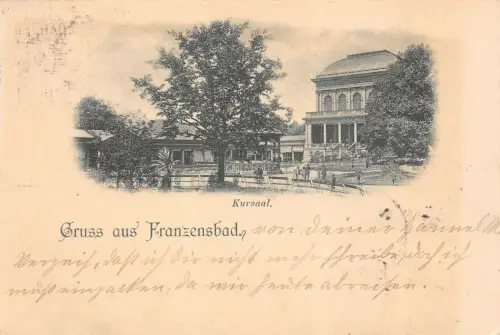 Kursaal.
Gruss aus Franzensbad., von deiner
Verzeih, daß ich dir nicht mehr schreibe, doch ich
muß einpacken, da wir heute abreisen.